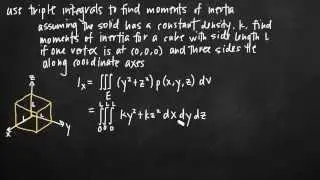 use triple integrals to find moments of inertia
assuming the solid has a constant density, k, find
moments of inertia for a cube with side length L
if one vertex is at (0,0,0) and three sides lie
along coordinate axes
Iₓ = ∭ (y²+z²) ρ(x,y,z) dV
E
L L L
= ∭ ky²+kz² dx dy dz
0 0 0
z
x
y